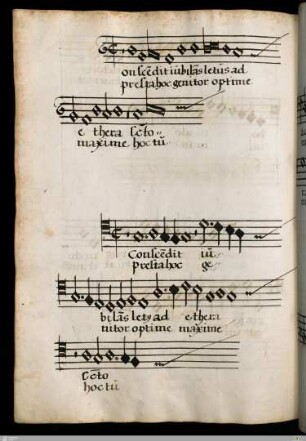 onscēdit iubilās letus ad
presta hoc genitor optime
e thera sc̄to
maxime hoc tū
Conscēdit iu
presta hoc ge
bilās letus ad ethera
nitor optime maxime
sc̄to
hoc tū